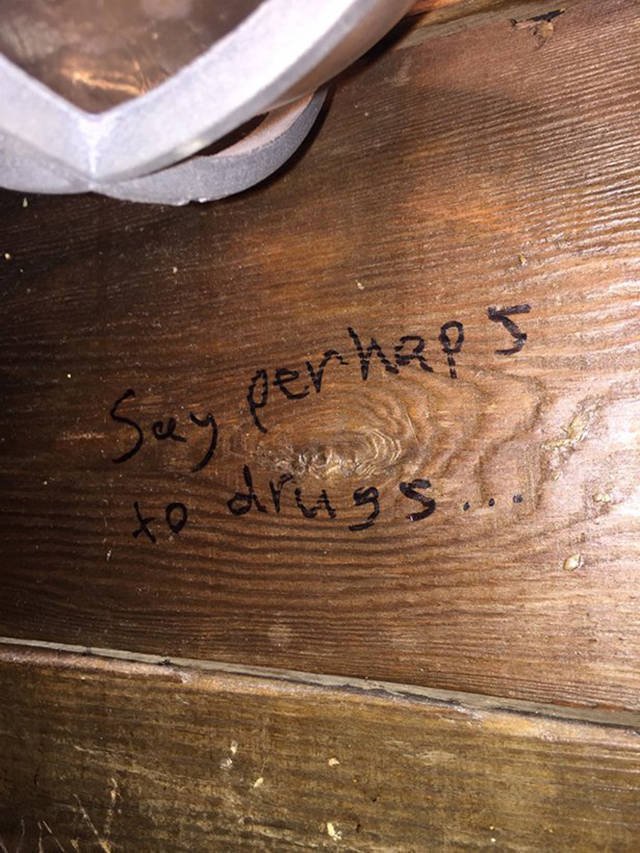 Say perhaps
to drugs...